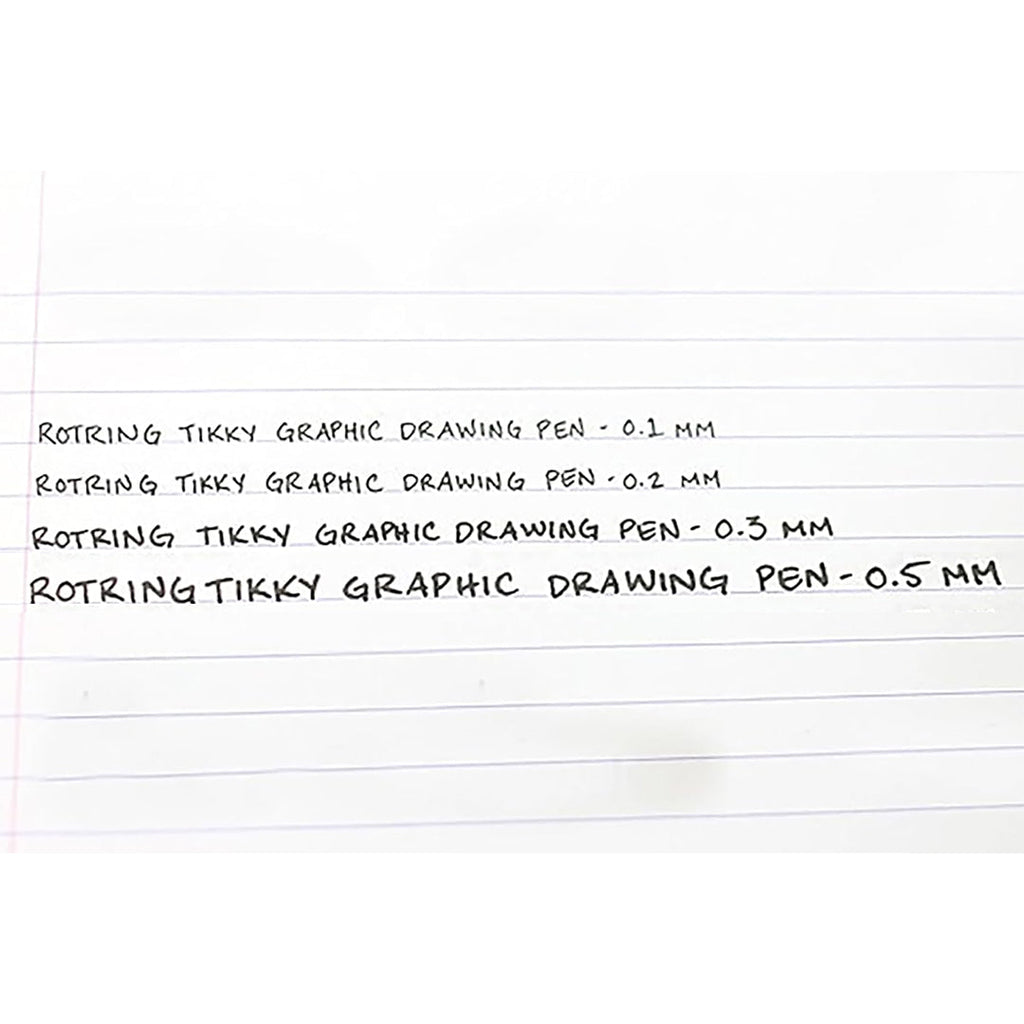 ROTRING TIKKY GRAPHIC DRAWING PEN - 0.1 MM
ROTRING TIKKY GRAPHIC DRAWING PEN - 0.2 MM
ROTRING TIKKY GRAPHIC DRAWING PEN - 0.3 MM
ROTRING TIKKY GRAPHIC DRAWING PEN - 0.5 MM